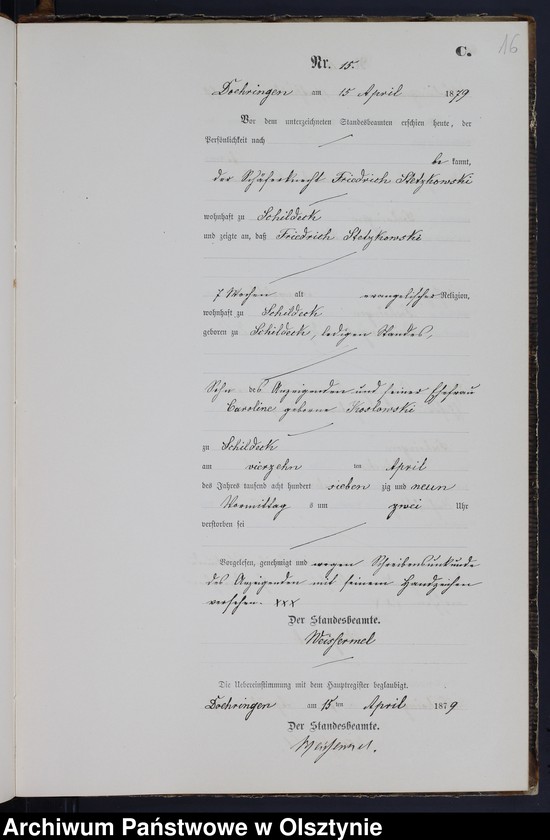 16
C.
Nr. 15.
Doehringen am 15 April 1879
Vor dem unterzeichneten Standesbeamten erschien heute, der
Persönlichkeit nach
be kannt,
der Schäferknecht Friedrich Stetzkowski
wohnhaft zu Schildeck
und zeigte an, daß Friedrich Stetzkowski
7 Wochen alt evangelischer Religion,
wohnhaft zu Schildeck
geboren zu Schildeck, ledigen Standes,
Sohn des Anzeigenden und seiner Ehefrau
Caroline geborne Koslowski
zu Schildeck
am vierzehn ten April
des Jahres tausend acht hundert sieben zig und neun
Vormittag s um zwei Uhr
verstorben sei
Vorgelesen, genehmigt und wegen Schreibensunkunde
des Anzeigenden mit seinem Handzeichen
versehen. xxx
Der Standesbeamte.
Weissermel
Die Uebereinstimmung mit dem Hauptregister beglaubigt.
Doehringen am 15 ten April 1879
Der Standesbeamte.
Weissermel.
Archiwum Państwowe w Olsztynie
Archiwum Państwowe w Olsztynie